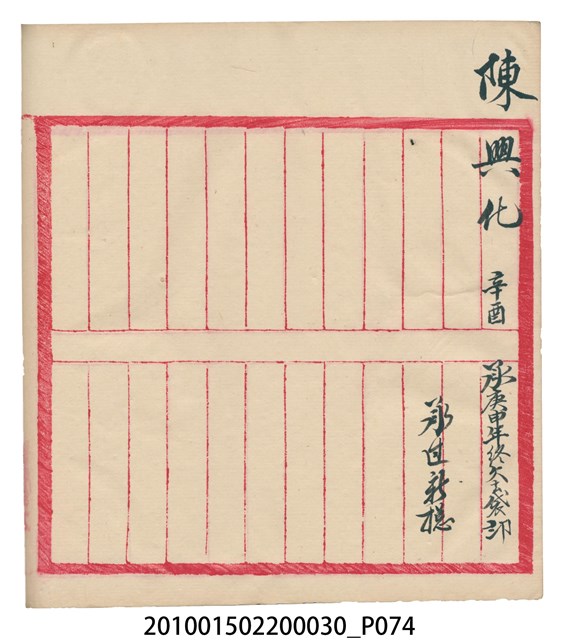 陳興化
辛酉
承庚申年終欠去袋
承过新摠
201001502200030_P074